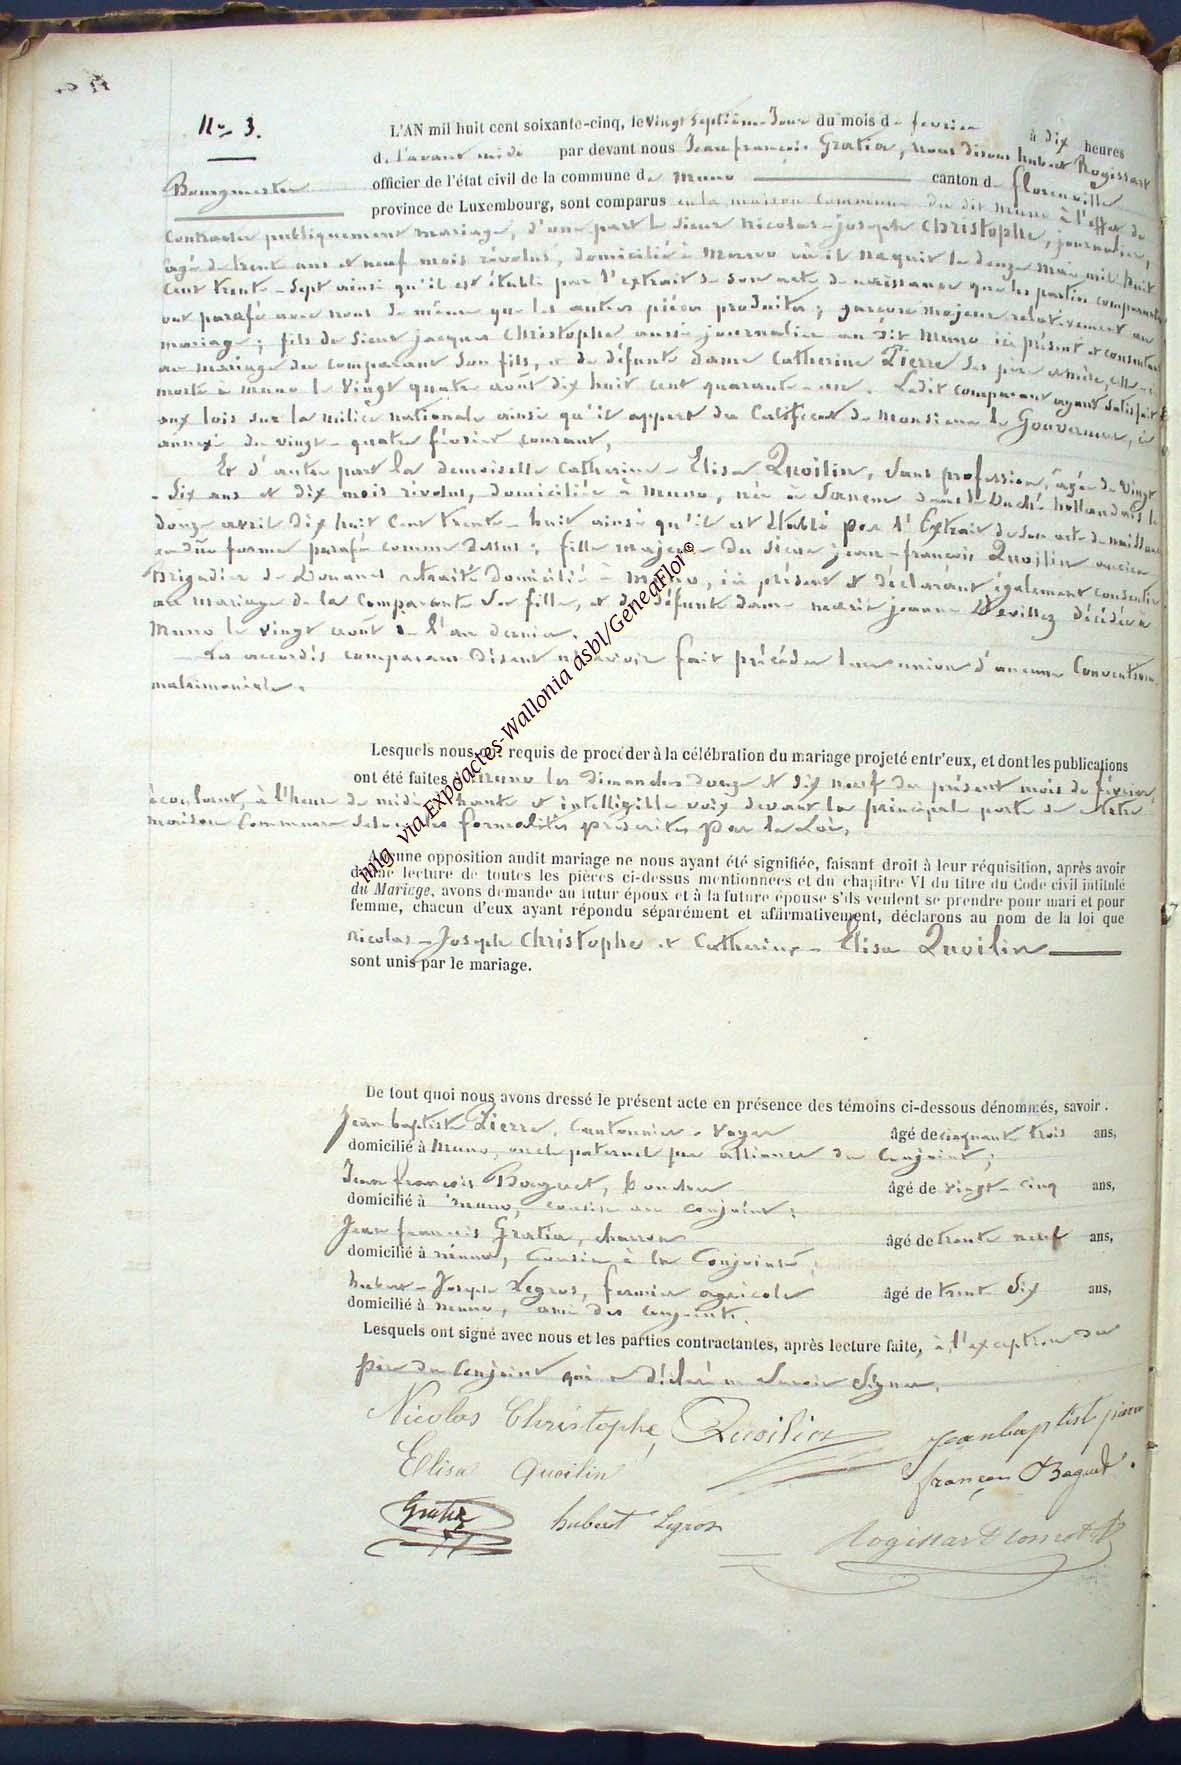 No 3.
L'AN mil huit cent soixante-cinq, le vingt septième Jour du mois de fevrier à dix heures
de l'avant midi par devant nous Jean françois Gratia, nous disons hubert Rogissart
Bourgmestre officier de l'état civil de la commune de Muno canton de florenville
province de Luxembourg, sont comparus en la maison Commune du dit Muno à l'effet de
Contracter publiquement mariage, d'une part le sieur Nicolas-joseph Christophe, journalier,
âgé de trente ans et neuf mois révolus, domicilié à Muno où il naquit le douze Mai mil huit
Cent trente-sept ainsi qu'il est établi par l'extrait de son acte de naissance que les parties comparantes
ont parafé avec nous de même que les autres pièces produites; garçon majeur relativement au
mariage; fils de Sieur jacques Christophe aussi journalier au dit Muno ici présent et consentant
au mariage du comparant son fils, et de défunte dame Catherine Pierre ses père et mère, elle-ci
morte à muno le vingt quatre août dix huit cent quarante-un. Ledit comparant ayant satisfait
aux lois sur la milice nationale ainsi qu'il appert du Certificat de Monsieur le Gouverneur, ci
annexé du vingt-quatre février courant,
Et d'autre part la demoiselle Catherine-Elisa Quoilin, Sans profession, âgée de vingt
-six ans et dix mois révolus, domiciliée à muno, née à Sanem dans le Duché hollandais le
douze avril dix huit Cent trente-huit ainsi qu'il est établi par l'Extrait de son acte de naissance
en due forme parafé comme dessus; fille majeure du sieur jean-françois Quoilin ancien
Brigadier de Douanes retraité domicilié à Muno, ici présent et déclarant également consentir
au mariage de la Comparante sa fille, et de défunte dame marie jeanne Devillez décédée à
Muno le vingt août de l'an dernier.
Les accordés comparans disent n'avoir fait précéder leur union d'aucune Convention
matrimoniale.
Lesquels nous ont requis de procéder à la célébration du mariage projeté entr'eux, et dont les publications
ont été faites à Muno les dimanches douze et dix neuf du présent mois de février,
écoulant, à l'heure de midi à haute et intelligible voix devant la principale porte de Notre
maison Commune selon les formalités préscrites par la Loi,
Aucune opposition audit mariage ne nous ayant été signifiée, faisant droit à leur réquisition, après avoir
donné lecture de toutes les pièces ci-dessus mentionnées et du chapitre VI du titre du Code civil intitulé
du Mariage, avons demandé au futur époux et à la future épouse s'ils veulent se prendre pour mari et pour
femme, chacun d'eux ayant répondu séparément et affirmativement, déclarons au nom de la loi que
Nicolas-Joseph Christophe et Catherine-Elisa Quoilin
sont unis par le mariage.
De tout quoi nous avons dressé le présent acte en présence des témoins ci-dessous dénommés, savoir.
Jean baptiste Pierre, Cantonnier-voyer âgé de cinquante trois ans,
domicilié à Muno, oncle paternel par alliance du Conjoint;
Jean françois Baguet, âgé de vingt-cinq ans,
domicilié à muno, cousin au conjoint;
Jean francois Gratia, charron âgé de trente neuf ans,
domicilié à Muno, Cousin à la Conjointe;
hubert-Joseph Legros, fermier agricole âgé de trente Six ans,
domicilié à muno, ami des conjoints.
Lesquels ont signé avec nous et les parties contractantes, après lecture faite, à l'exception du
père du Conjoint qui a déclaré ne savoir Signer.
Nicolas Christophe, Quoilin Jeanbaptist pierre
Ellisa Quoilin françois Baguet.
Gratia hubert Legros Rogissart
img via Expoactes-Wallonia asbl/GeneaFlor©